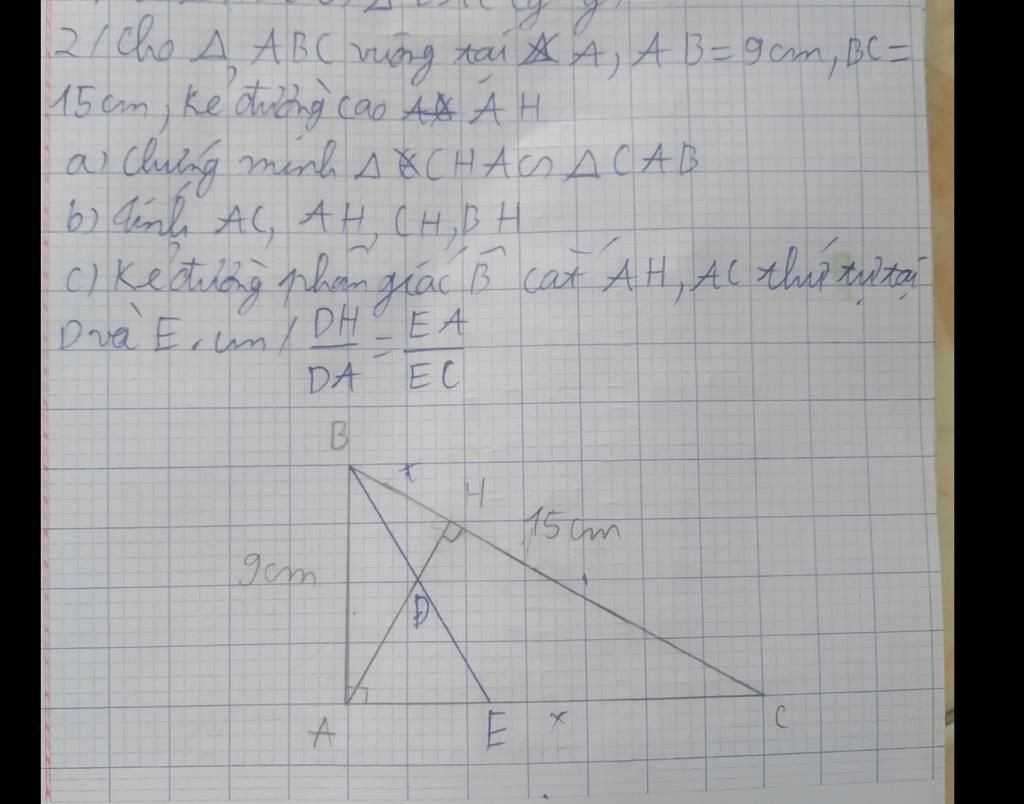 2/ Cho Δ ABC vuông tại A, AB = 9cm, BC =
15cm, kẻ đường cao AH
a) Chứng minh Δ CHA ∽ Δ CAB
b) tính AC, AH, CH, BH
c) Kẻ đường phân giác B̂ cắt AH, AC thứ tự tại
D và E. cm / DH/DA = EA/EC
B
H
15cm
9cm
D
A
E
x
C